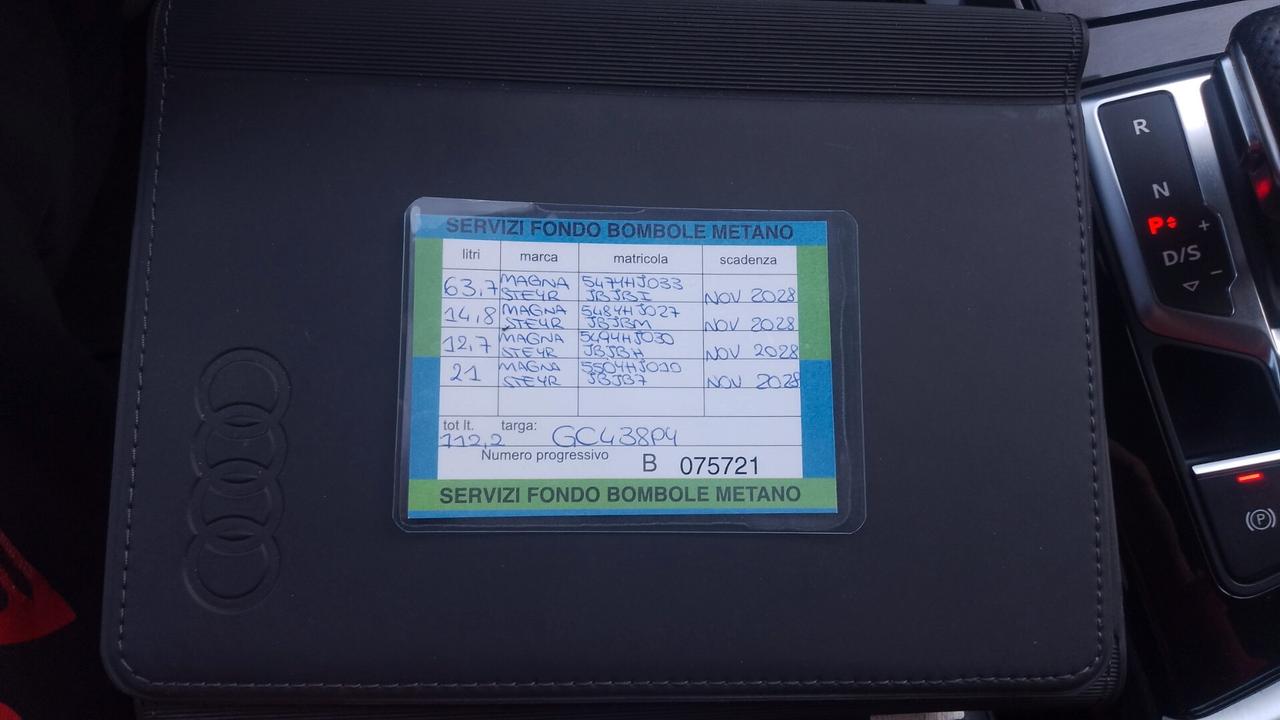 SERVIZI FONDO BOMBOLE METANO
litri marca matricola scadenza
63,7 MAGNA STEYR 5474HJ033 JBJBI NOV 2028
14,8 MAGNA STEYR 5484HJ027 JBJBM NOV 2028
12,7 MAGNA STEYR 5494HJ030 JBJBH NOV 2028
21 MAGNA STEYR 5504HJ010 JBJB7 NOV 2028
tot lt. 112,2 targa: GC438P4
Numero progressivo B 075721
SERVIZI FONDO BOMBOLE METANO
R
N
P
+
D/S
−
P